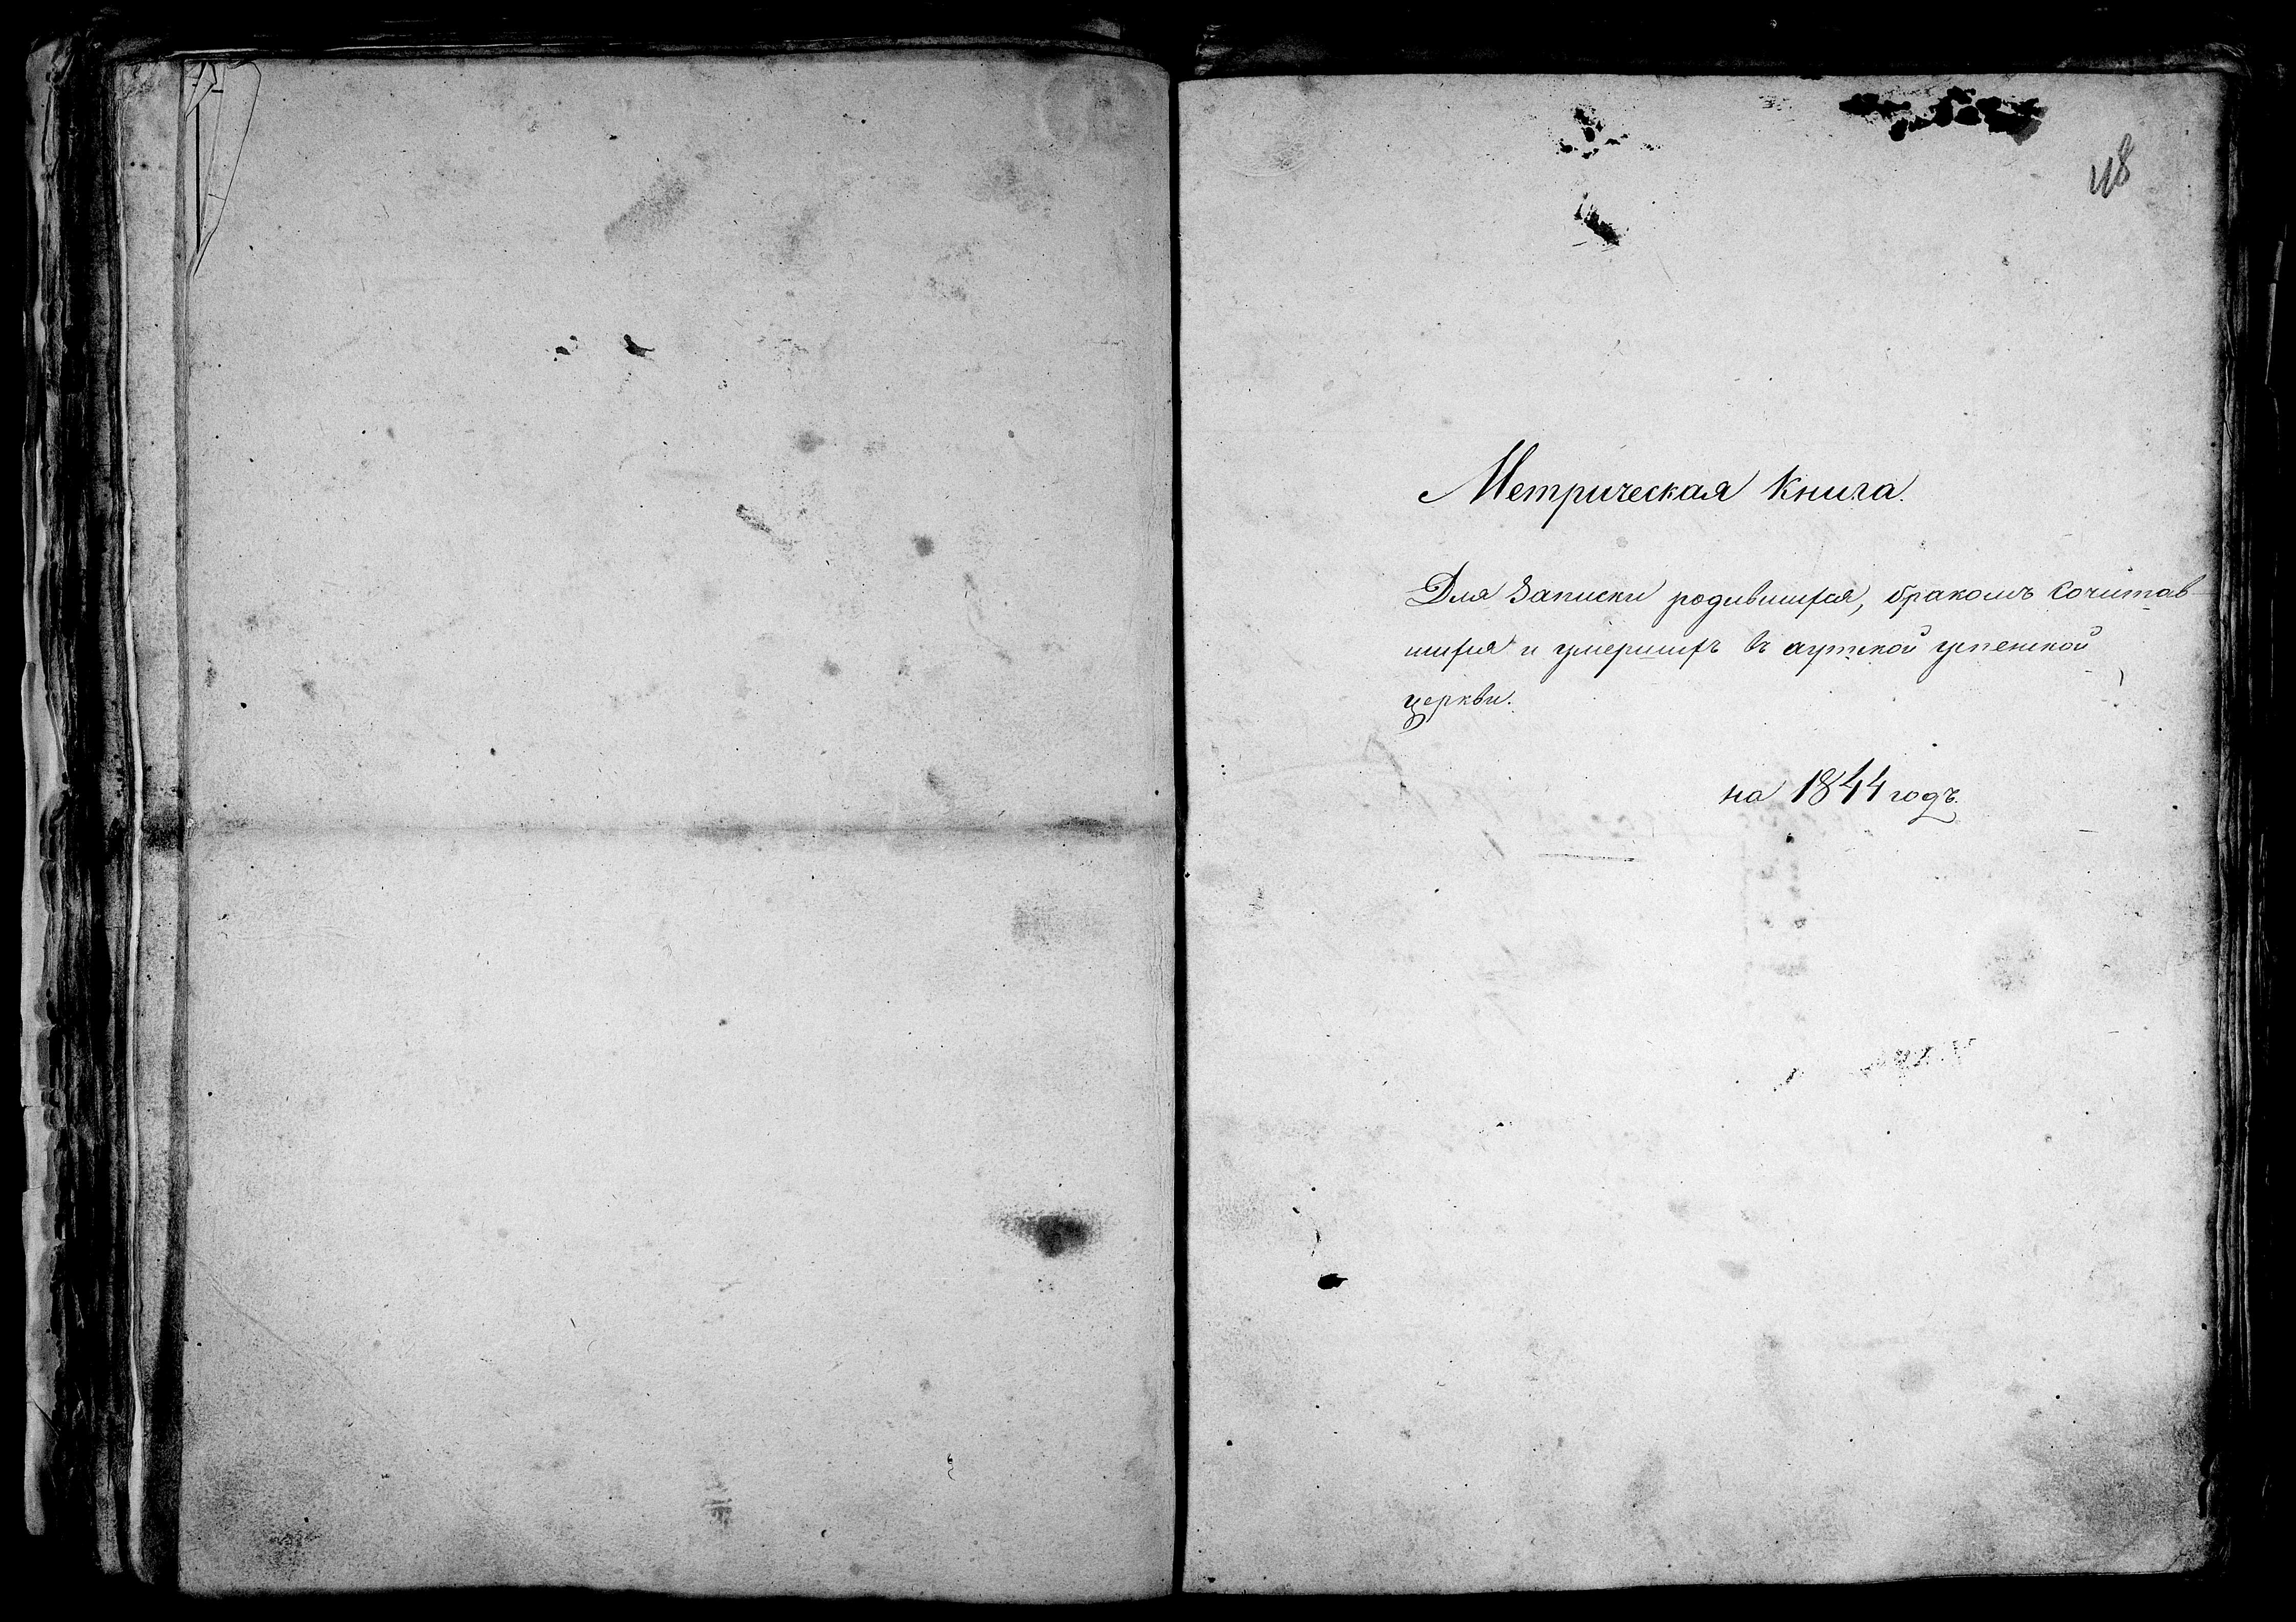 118
Метрическая Книга.
Для Записки родившихся, бракомъ Сочитав
шихся и умершихъ въ аутской успенской
церкви.
на 1844 годъ.